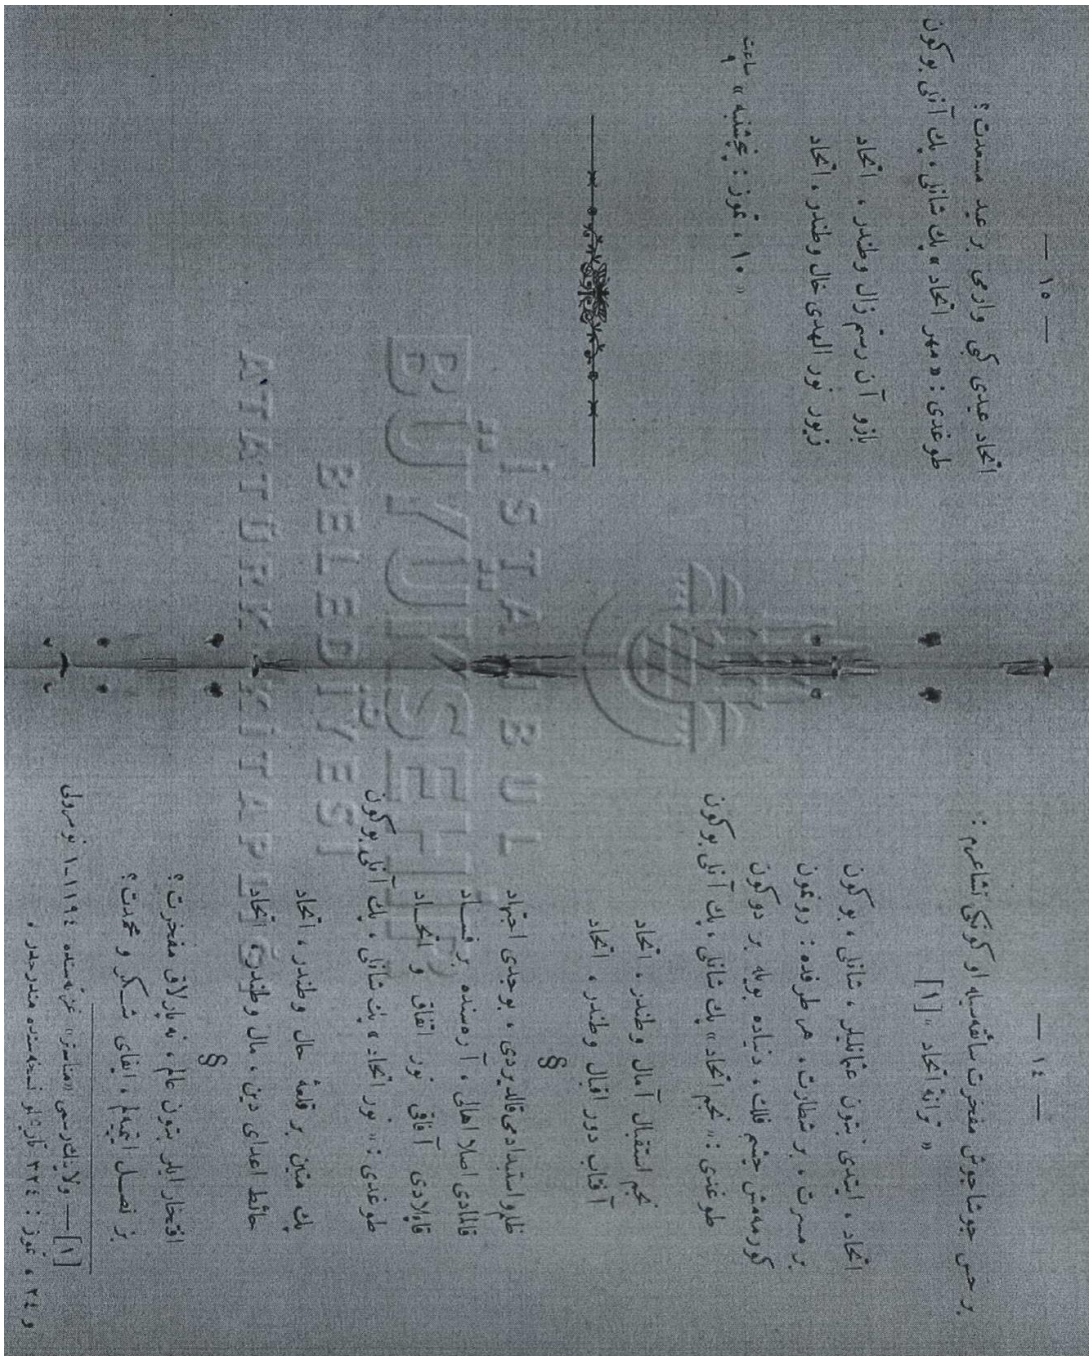 — ١٤ —
بر حس جوشاجوش مفخرت سائقه‌سیله او كونكی نشائدم :
« ترانهٔ اتحاد » [١]
اتحاد ، ایتدی بتون عثمانلیلر ، شانلی ، بوكون
بر مسرت ، بر شطارت ، هر طرفده : رونمون
كورمه‌مش چشم فلك ، دنیاده بویله بر دوكون
طوغدی : « نجم اتحاد » پك شانلی ، پك آنلی بوكون
نجم استقبال آمال وطندر ، اتحاد
آفتاب دور اقبال وطندر ، اتحاد
§
ظلم واستبدادمی قالدیردی ، بوجدی اجتهاد
قالمادی اصلا اهالی ، آره‌سنده بر فساد
قاپلادی آفاقی نور اتفاق و اتحاد
طوغدی : « نور اتحاد » پك شانلی ، پك آنلی بوكون
پك متین بر قلعهٔ حال وطندر ، اتحاد
حائط اعدای دین ، مال وطندر ، اتحاد
§
افتخار ایلر بتون عالم ، نه پارلاق مفخرت ؟
بز نصل ایتمیه‌لم ، ایفای شكر و محمدت ؟
[١] — ولایتك رسمی «مناستر» غزته‌سنده ١١٩٤-١ نومرولی
و ٢٤ ، تموز : ٣٢٤ تاریخلو نسخه‌سنده مندرجدر .
— ١٥ —
اتحاد عیدی كبی وارمی بر عید مسعدت ؟
طوغدی : « مهر اتحاد » پك شانلی ، پك آنلی بوكون
بازو آن رستم زال وطندر ، اتحاد
زیور نور الهدی خال وطندر ، اتحاد
« ١٠ ، تموز : پنجشنبه » ساعت ٩
İSTANBUL
BÜYÜKŞEHİR
BELEDİYESİ
ATATÜRK KİTAPLIĞI